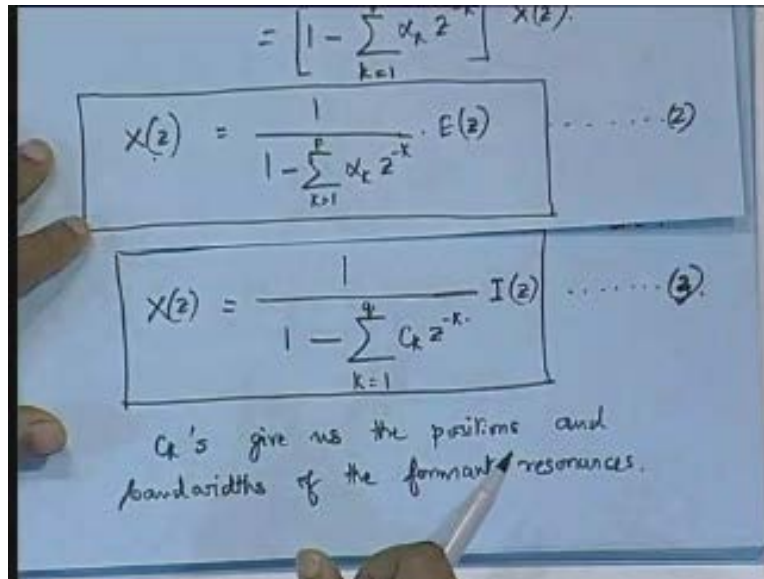 = [1 - ∑_{k=1} α_k z^{-k}] X(z).
X(z) = \frac{1}{1 - ∑_{k=1}^{p} α_k z^{-k}} . E(z) ........(2)
X(z) = \frac{1}{1 - ∑_{k=1}^{q} C_k z^{-k}} I(z) .......(3).
C_k's give us the positions and
bandwidths of the formant resonances.